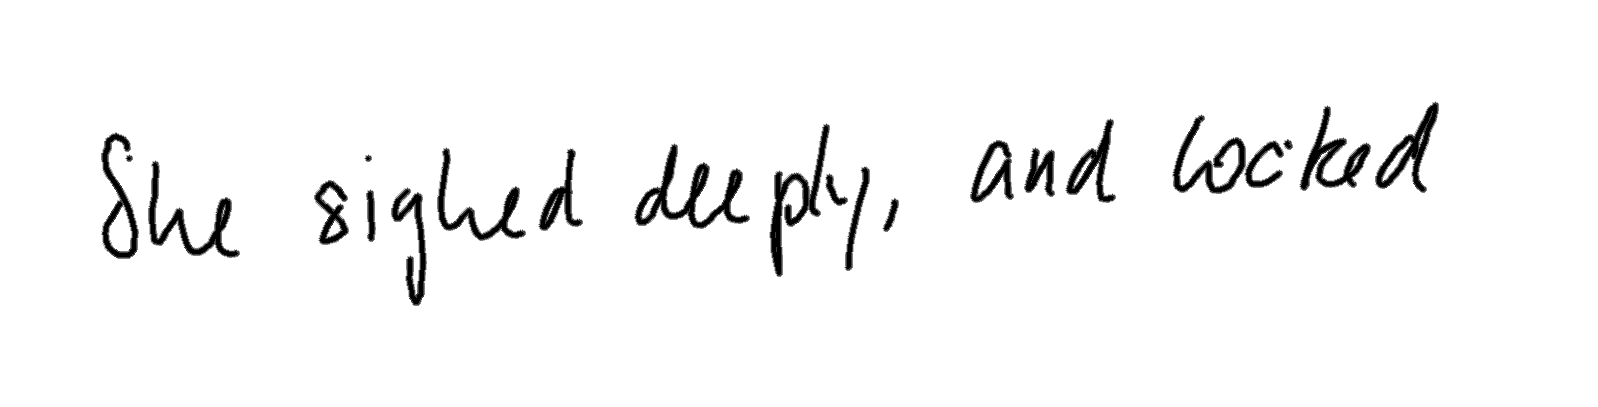 She sighed deeply, and locked